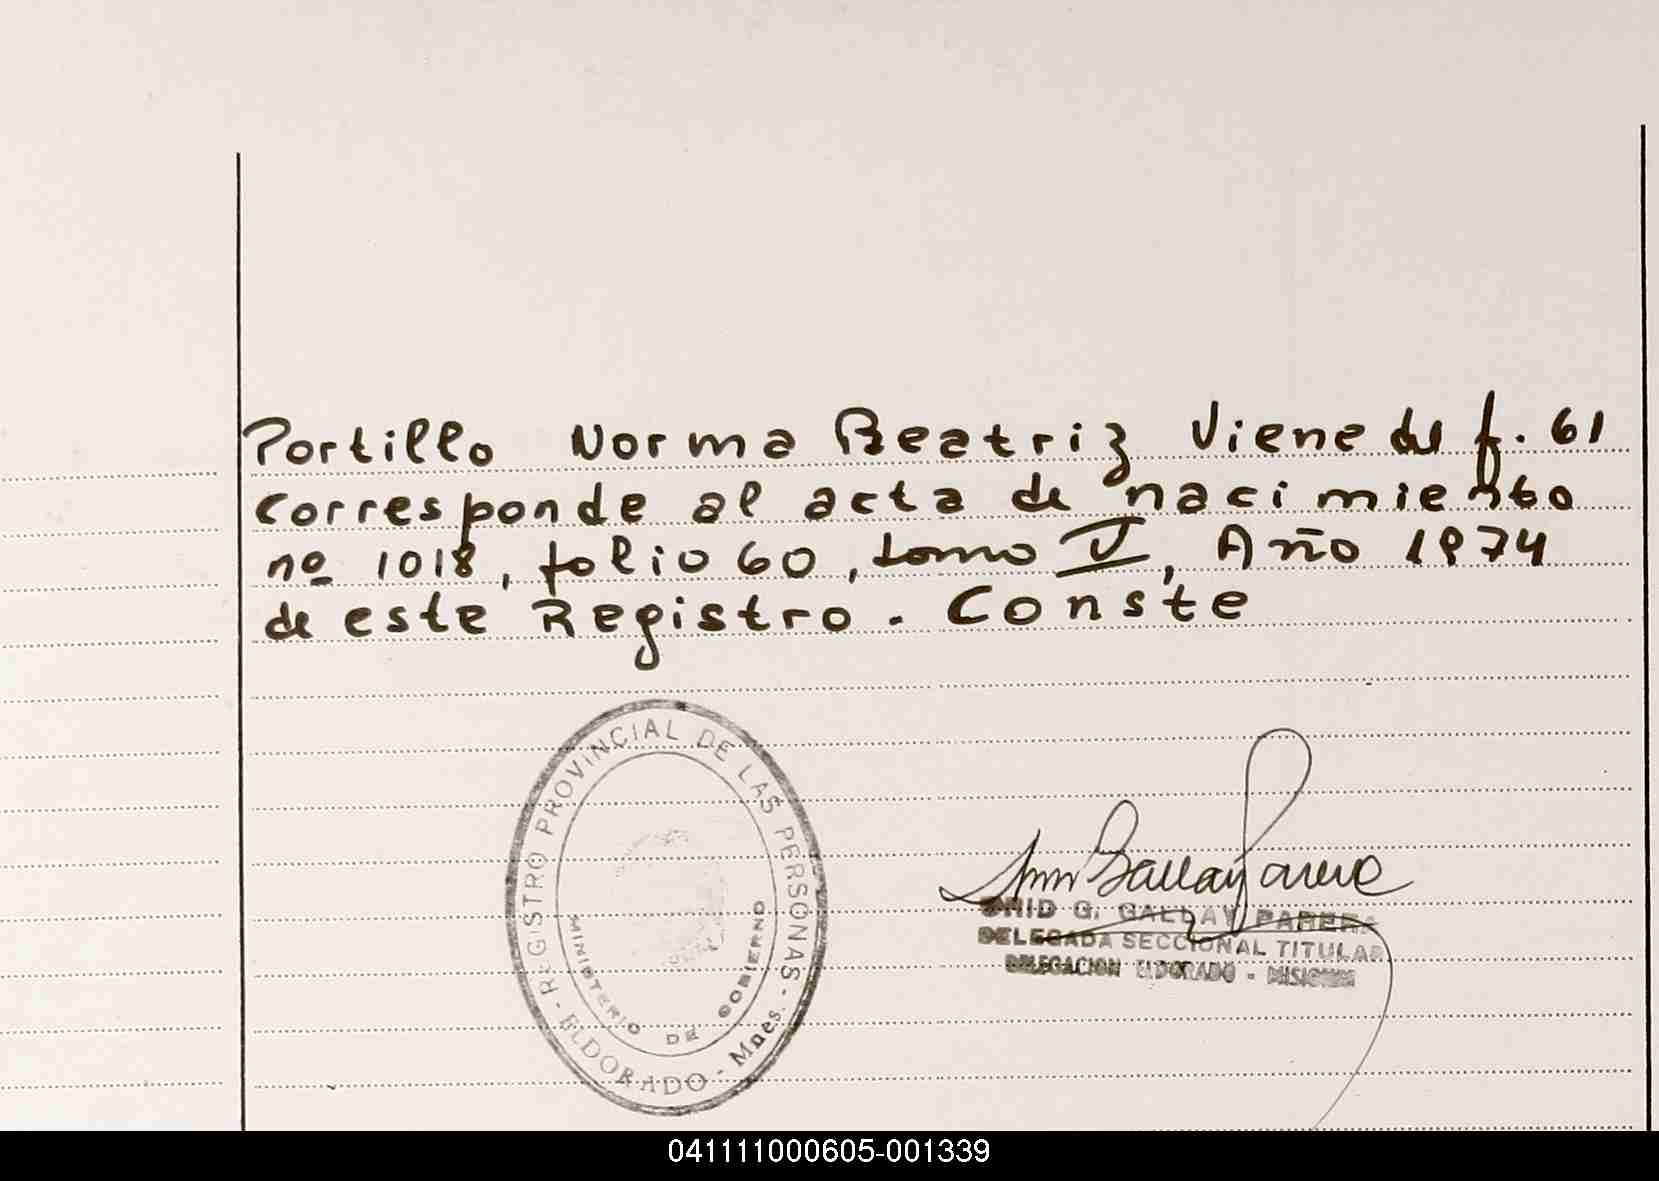 Portillo Norma Beatriz Viene del f. 61
corresponde al acta de nacimiento
nº 1018, folio 60, tomo V, Año 1974
de este Registro. Conste
REGISTRO PROVINCIAL DE LAS PERSONAS
MINISTERIO DE GOBIERNO
ELDORADO - Mnes.
G. GALLAY PARERA
DELEGADA SECCIONAL TITULAR
DELEGACION ELDORADO - MISIONES
041111000605-001339